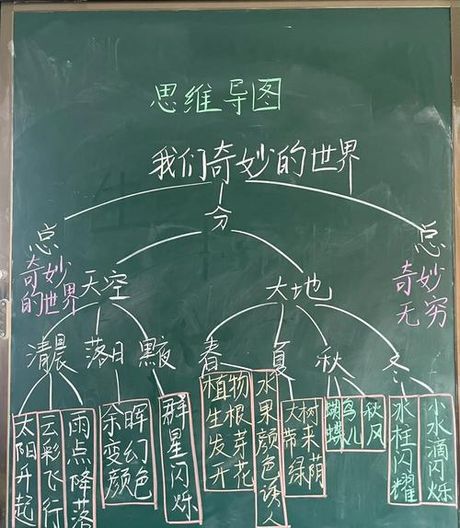 思维导图
我们奇妙的世界
总
分
总
奇妙
的世界
天空
大地
奇妙
无穷
清晨
落日
黑夜
春
夏
秋
冬
太阳升起
云彩飞行
雨点降落
余晖
变幻
颜色
群星闪烁
植物
生根
发芽
开花
水果颜色诱人
大树
带来
绿荫
蝴蝶
鸟儿
秋风
水柱闪耀
小水滴闪烁